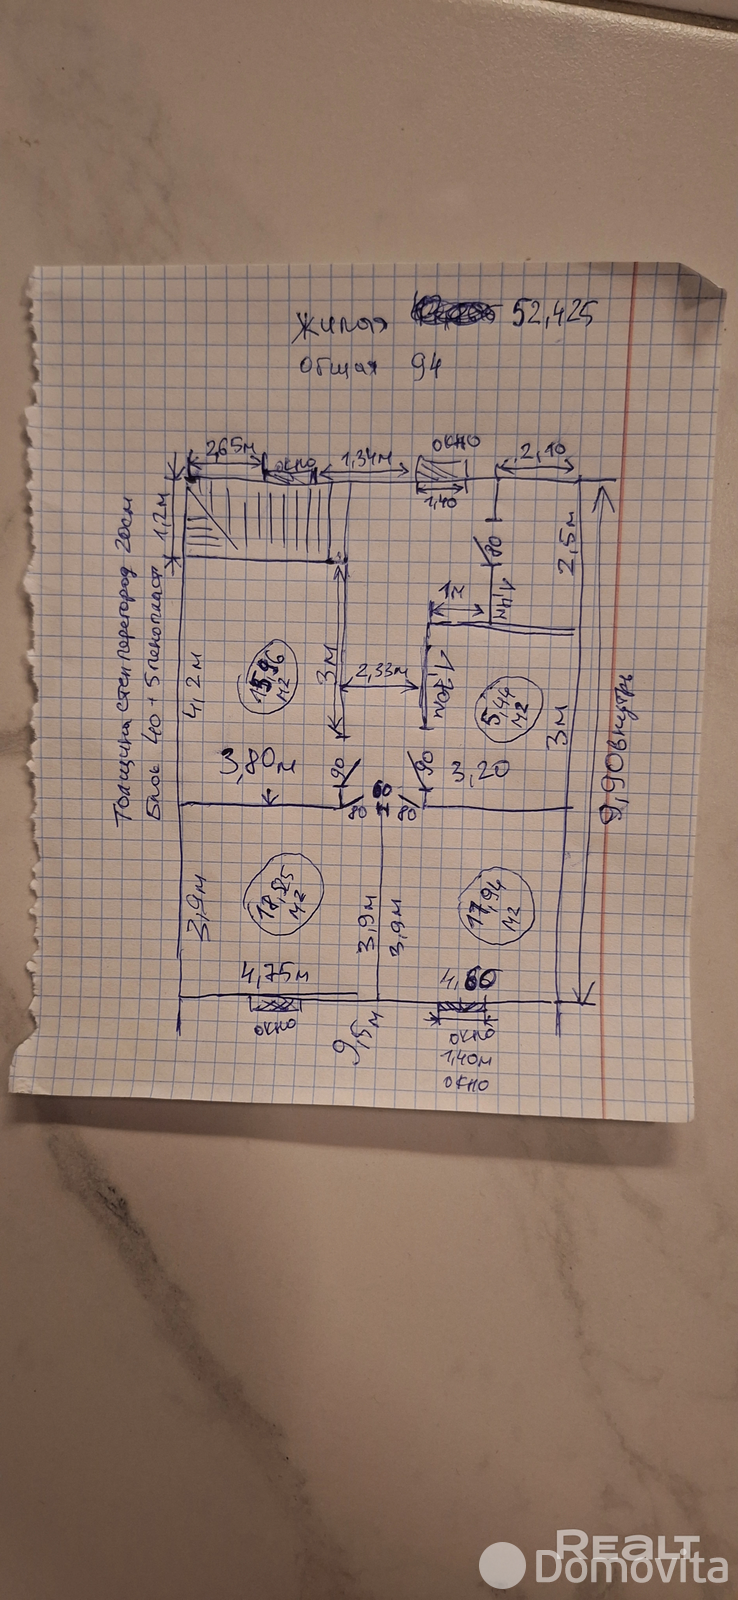 Жилая 52,425
Общая 94
Толщина стен перегород 20см
Блок 40 + 5 пенопласт
2,65м
окно
1,34м
окно
1,40
2,10
1,2м
80
2,5м
1,4м
1м
4,2м
15,96
м2
3м
2,33м
1,20м
5,44
м2
3м
9,90 внутрь
3,80м
90
90
3,20
80
60
80
3,9м
18,525
м2
3,9м
3,9м
17,94
м2
4,75м
4,60
окно
9,5м
окно
1,40м
окно
REALT
Domovita